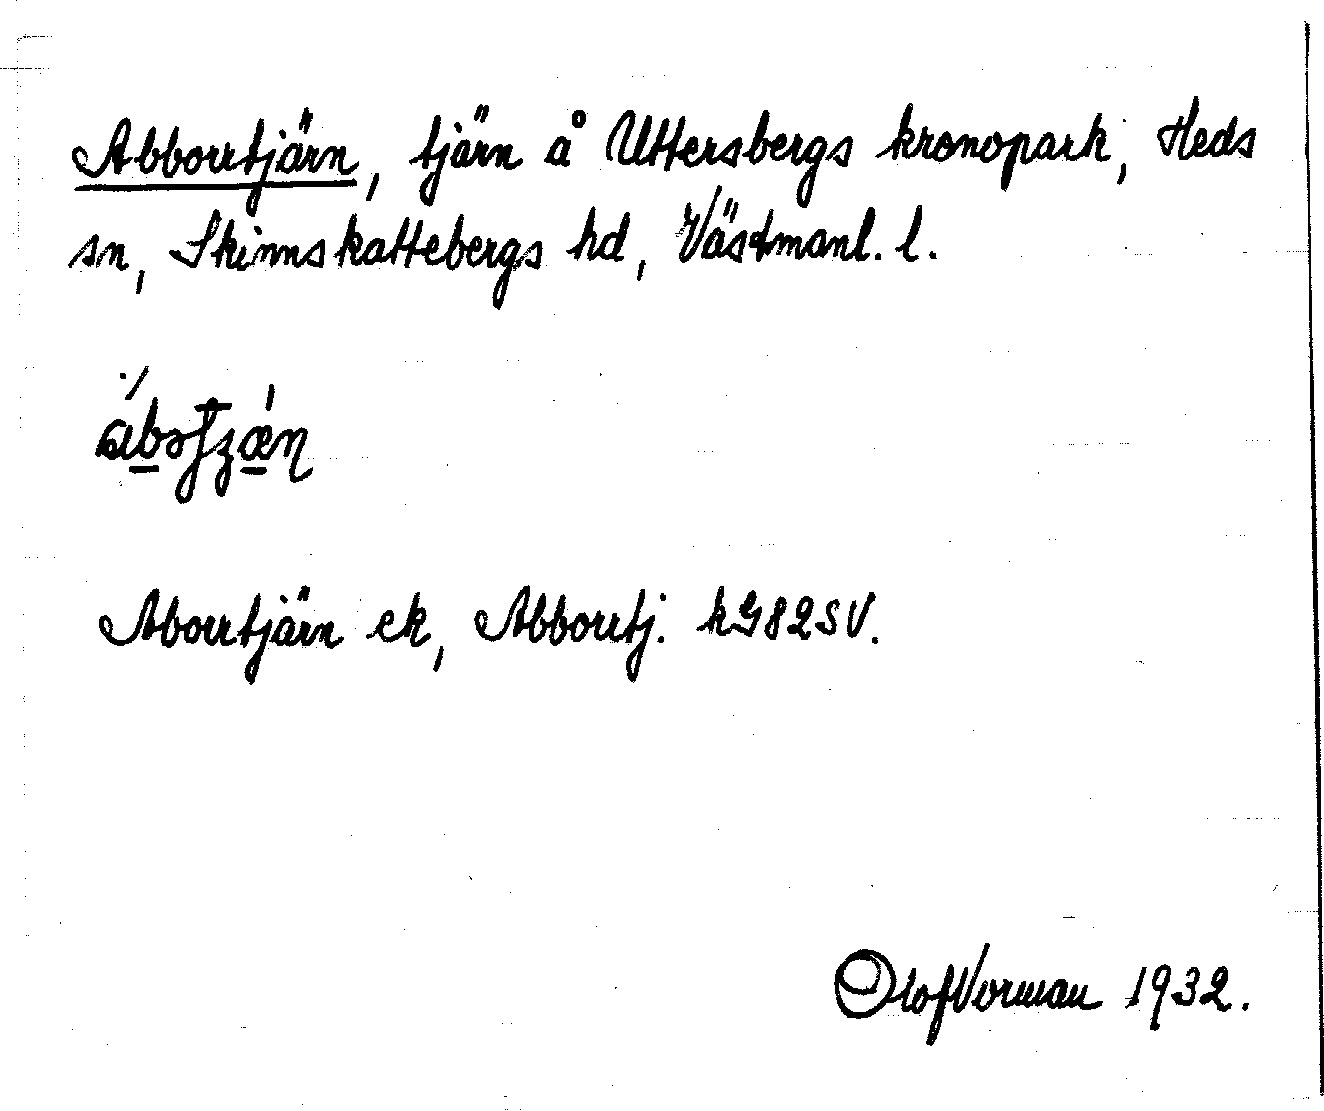 Abborrtjärn, tjärn å Uttersbergs kronopark, Heds
sn, Skinnskattebergs hd, Västmanl. l.
Aborrtjärn ek, Abborrtj. kG82SV.
Olof Vorman 1932.